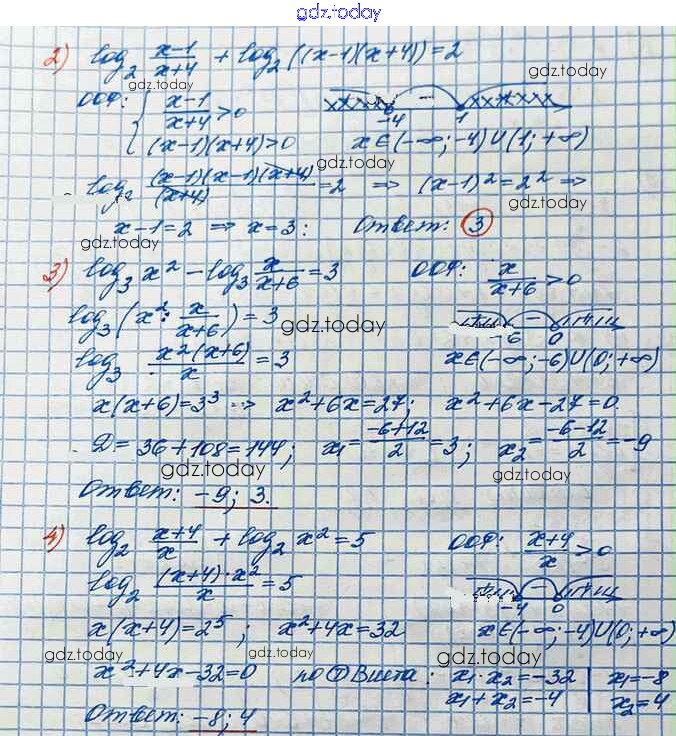 gdz.today
2) log₂ (x-1)/(x+4) + log₂((x-1)(x+4)) = 2
gdz.today gdz.today
ООФ: { (x-1)/(x+4) > 0
-4 1
(x-1)(x+4) > 0 x∈(-∞; -4)∪(1; +∞)
gdz.today
log₂ ((x-1)(x-1)(x+4))/(x+4) = 2 ⇒ (x-1)² = 2² ⇒
gdz.today
x-1=2 ⇒ x=3: Ответ: 3
gdz.today
3) log₃ x² - log₃ x/(x+6) = 3 ООФ: x/(x+6) > 0
gdz.today
log₃(x² : x/(x+6)) = 3
gdz.today
-6 0
log₃ (x²(x+6))/x = 3 x∈(-∞; -6)∪(0; +∞)
gdz.today
x(x+6)=3³ ⇒ x²+6x=27; x²+6x-27=0.
D=36+108=144; x₁=(-6+12)/2=3; x₂=(-6-12)/2=-9
gdz.today
gdz.today
Ответ: -9; 3.
4) log₂ (x+4)/x + log₂ x² = 5 ООФ: (x+4)/x > 0
gdz.today
log₂ ((x+4)·x²)/x = 5
-4 0
gdz.today
x(x+4)=2⁵; x²+4x=32 x∈(-∞; -4)∪(0; +∞)
gdz.today gdz.today gdz.today
x²+4x-32=0 по Т Виета: x₁·x₂=-32 | x₁=-8
x₁+x₂=-4 | x₂=4
Ответ: -8; 4
gdz.today gdz.today